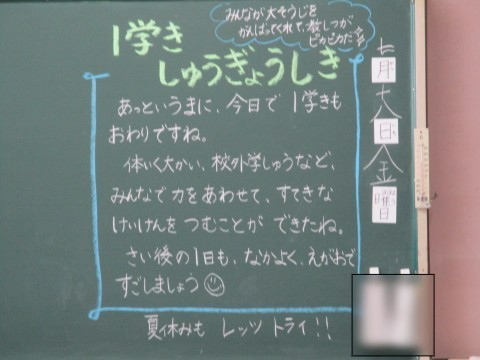 みんなが大そうじを
がんばってくれて、教しつが
ピカピカだ
1学き
しゅうぎょうしき
あっというまに、今日で1学きも
おわりですね。
体いく大かい、校外学しゅうなど、
みんなで力をあわせて、すてきな
けいけんをつむことができたね。
さい後の1日も、なかよく、えがおで
すごしましょう
夏休みも レッツ トライ!!
七月十八日金曜日